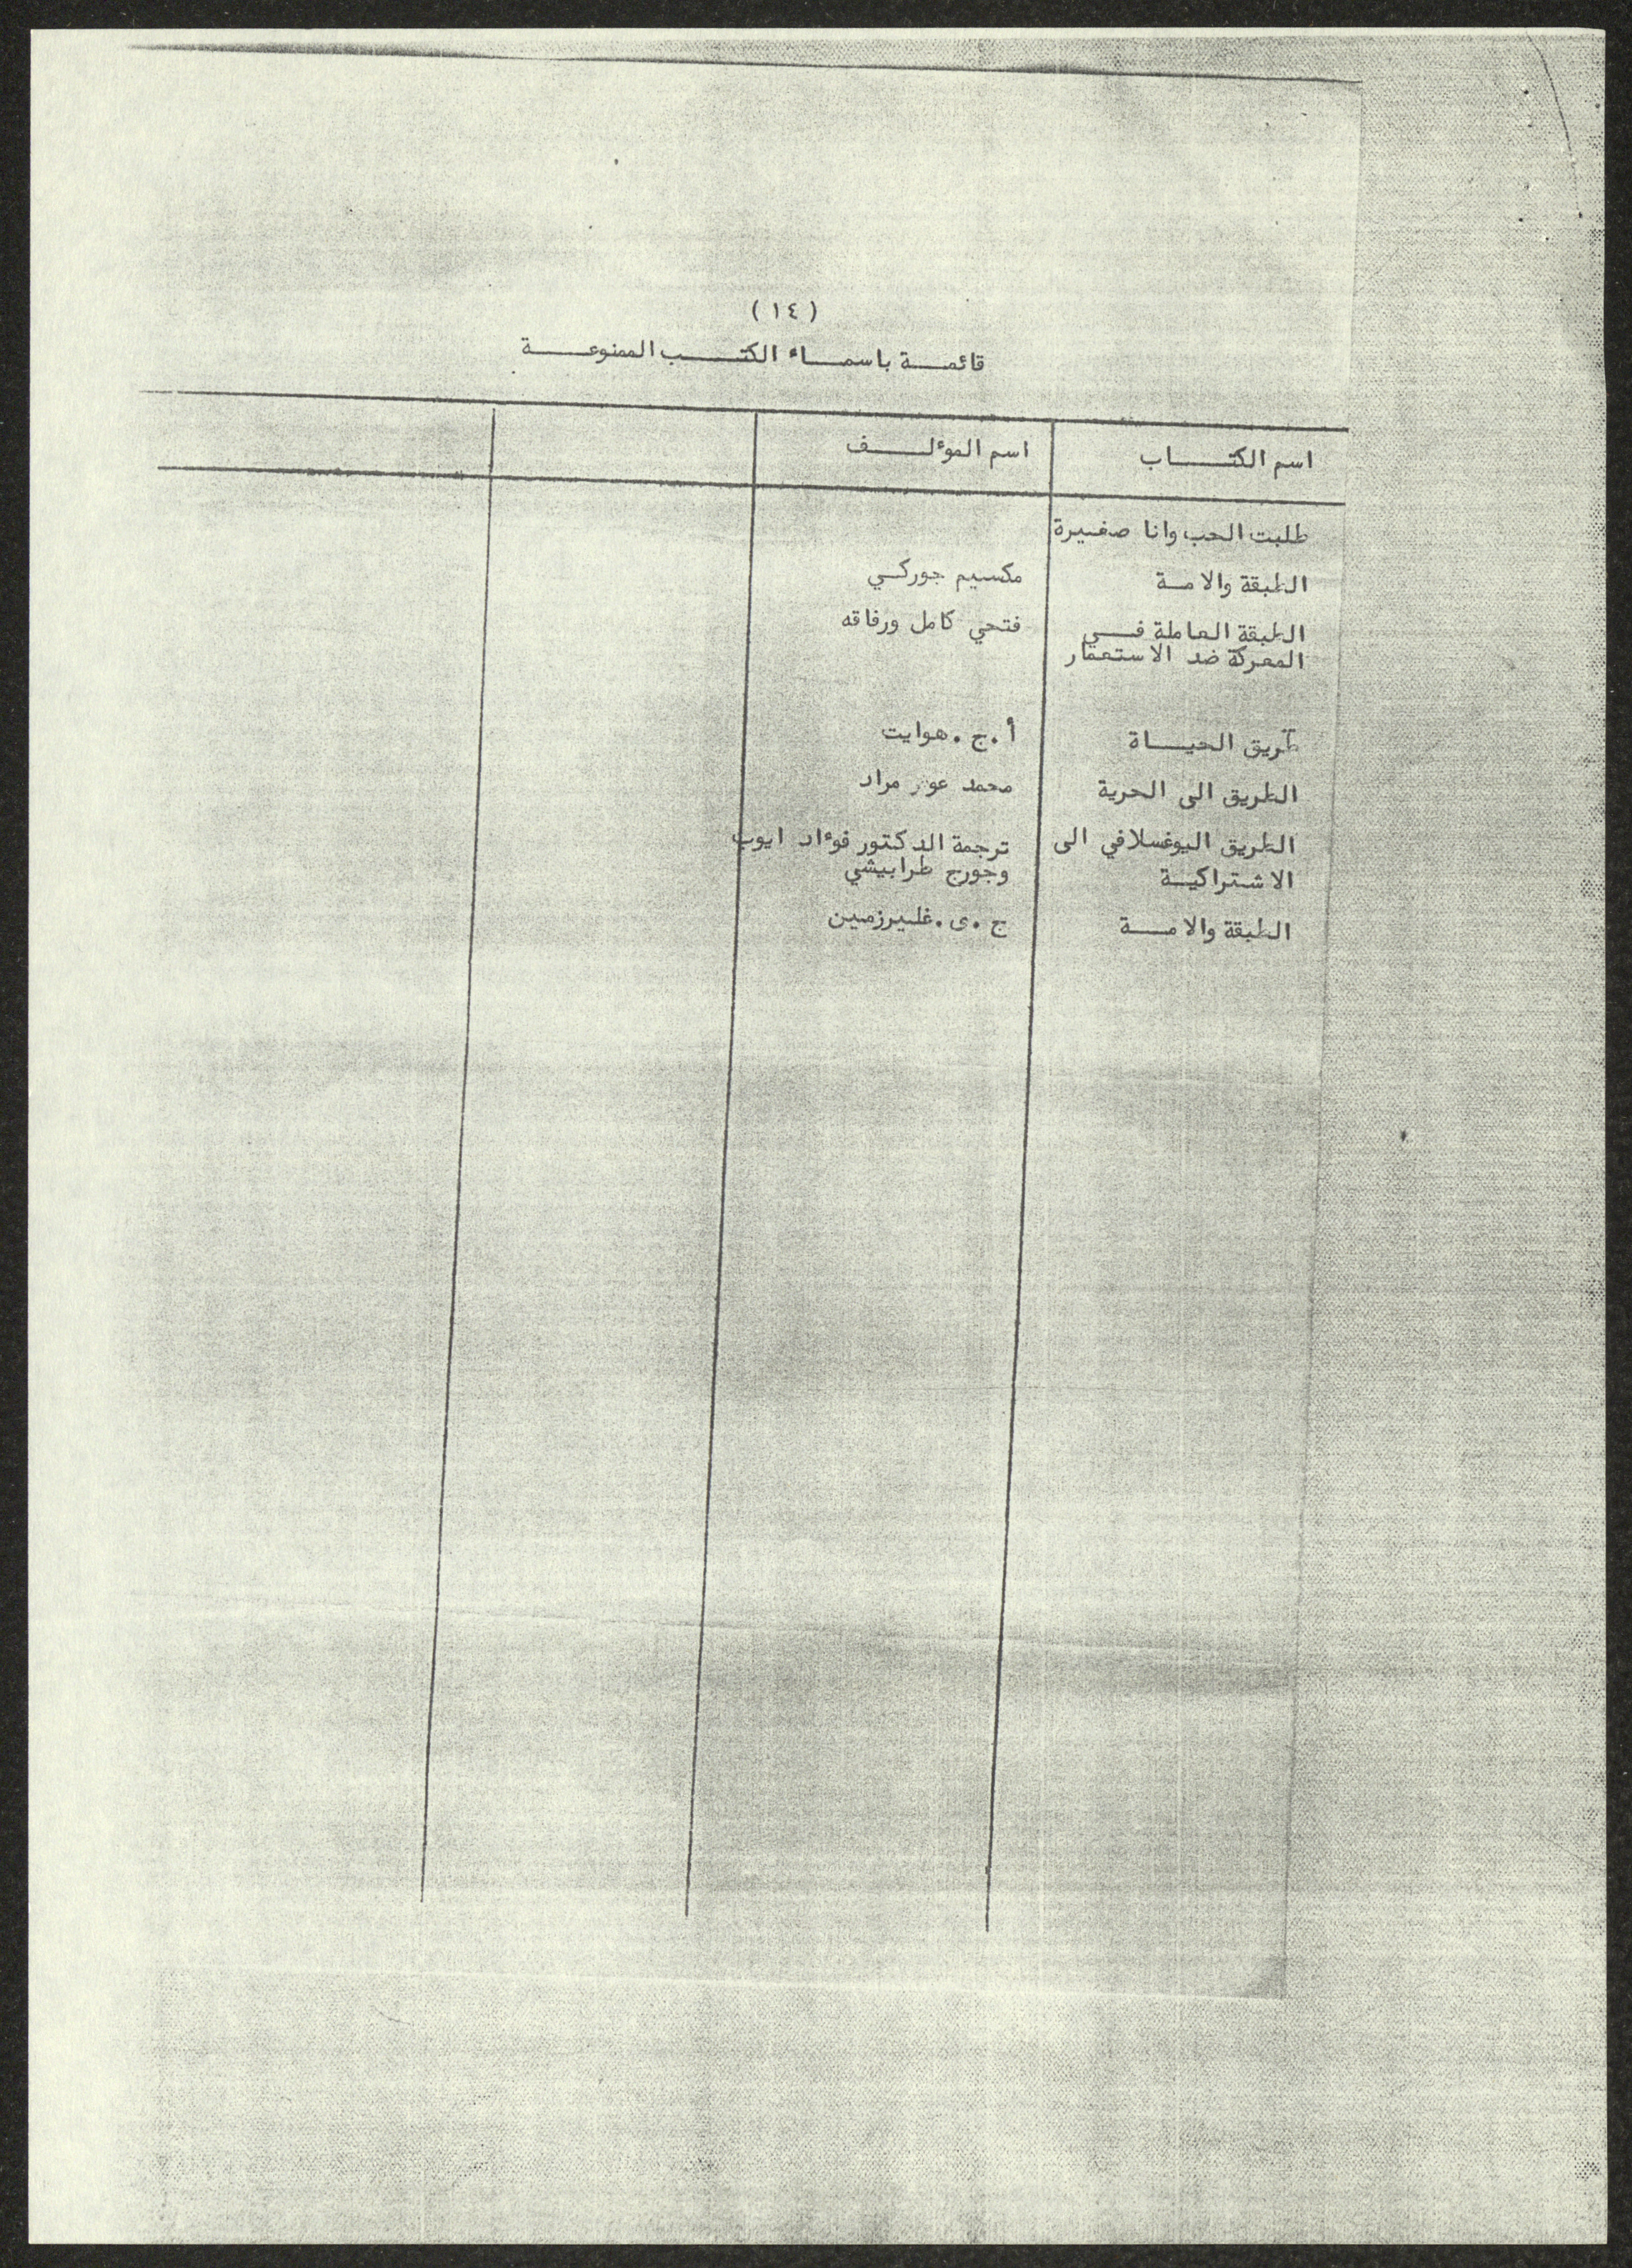 ( ١٤ )
قائمة باسماء الكتب الممنوعة
اسم الكتاب	اسم الموٴلف
طلبت الحب وانا صغيرة
الطبقة والامة	مكسيم جوركي
الطبقة العاملة في	فتحي كامل ورفاقه
المعركة ضد الاستعمار
طريق الحياة	أ.ج.هوايت
الطريق الى الحرية	محمد مراد
الطريق اليوغسلافي الى	ترجمة الدكتور فوٴاد ايوب
الاشتراكية	وجورج طرابيشي
الطبقة والامة	ج.ى.غليرزمين